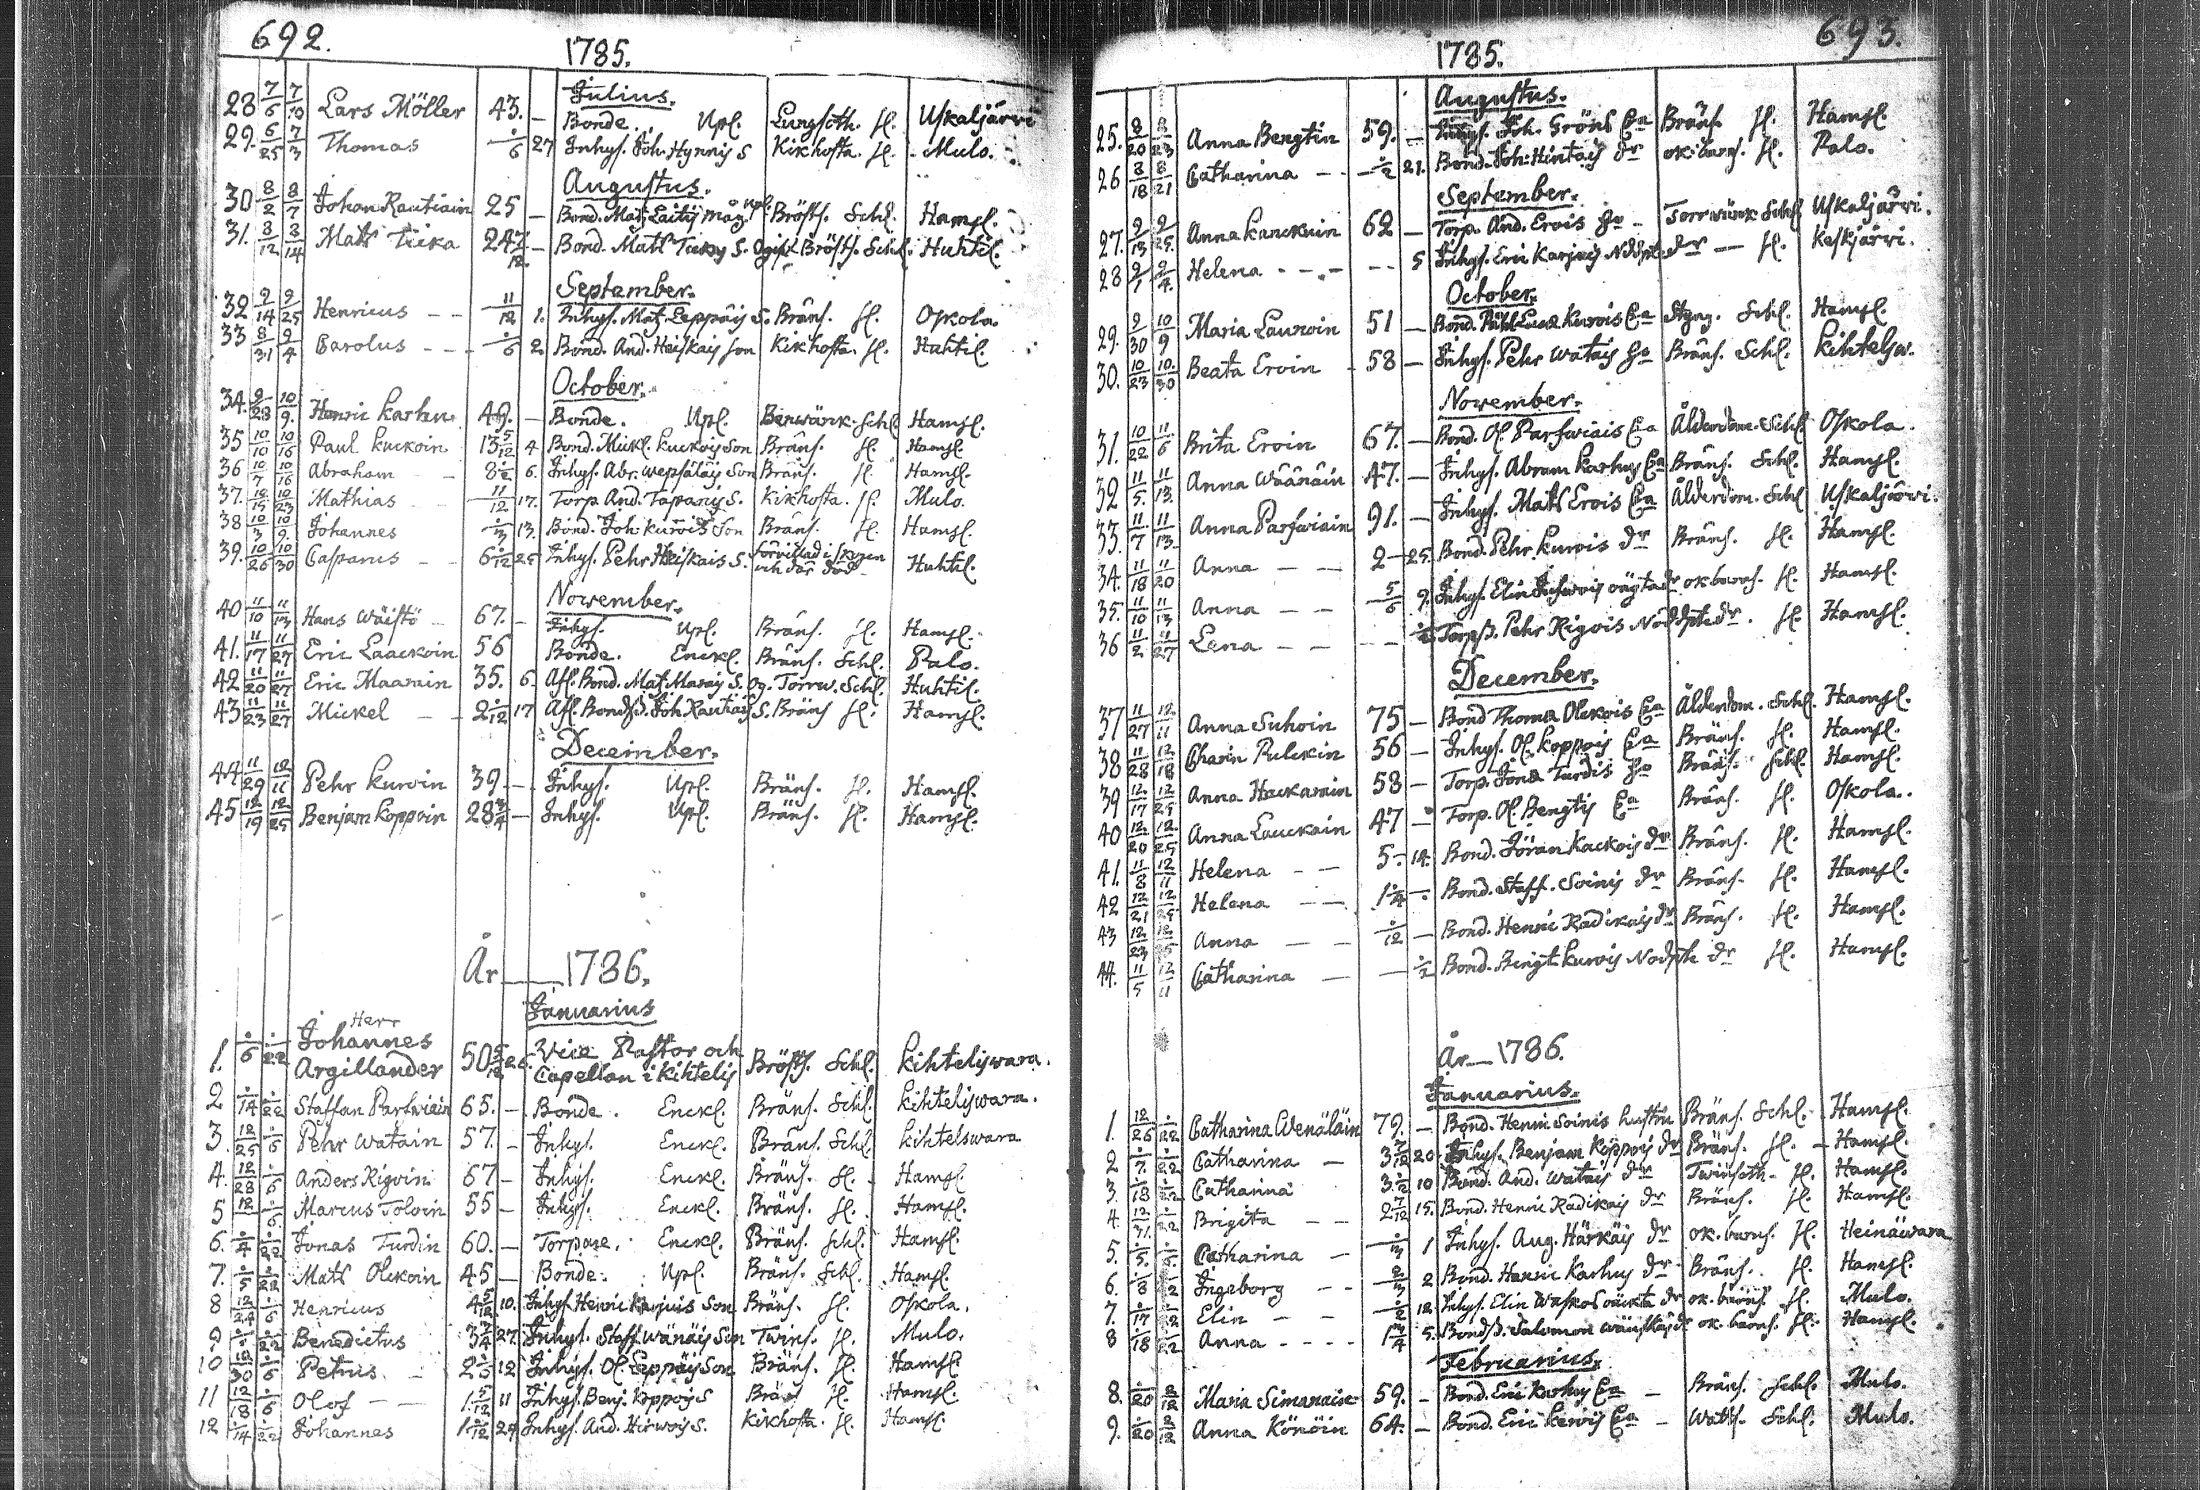 692.
1785.
Julius.
28 7/6 7/10 Lars Möller 43. — Bonde. Upl. Lungsoth. sl. Uskaljärvi
29. 6/25 7/3 Thomas ·/6 27 Inhys. Joh. Hynnis S Kikhosta. sl. Mulo.
Augustus.
30 8/2 8/7 Johan Rautiain 25 — Bond. Mats Laitis måg. Upl. Bröstf. Schl. Hamsl.
31. 8/12 8/14 Mats Tiika 24 — Bond. Mats S. Ogift Bröstf. Schl. Huhtil.
September.
32 9/14 9/25 Henricus — — 11/12 1. Inhys. Mats Leppäis S. Bränf. sl. Oskola.
33 8/31 9/4 Carolus — — ·/6 2. Bond. And. Heiskais son Kikhosta. sl. Huhtil.
October.
34. 9/28 10/9. Henric Karhu 49. — Bonde. Upl. Benwärk. Schl Hamsl.
35 10/10 10/16 Paul Kuckoin 13 5/12 4 Bond. Mickl. Kuckois Son Bränf. sl. Hamsl.
36 10/7 10/16 Abraham — 8 ·/2 6. Inhys. Abr. Wepsäläis Son Bränf. sl. Hamsl.
37. 10/15 10/23 Mathias — 11/12 17. Torp. And. Taspanis S. Kikhosta. sl. Mulo.
38 10/3 10/9. Johannes ·/3 13. Bond. Joh. Kurvis Son Bränf. sl. Hamsl.
39. 10/26 10/30 Casparus — — 6 ·/12 25 Inhys. Pehr Heiskais S. Förvillad i skogen
och där död — Huhtil.
November.
40 11/10 11/13 Hans Wäistö — 67. — Inhys. Upl. Bränf. sl. Hamsl.
41. 11/17 11/27 Eric Laackoin 56 Bonde. Enckl. Bränf. Schl. Palo.
42 11/20 11/27 Eric Maarain 35. 6 Afl. Bond. Mats Marais S. Og. Torrw. Schl. Huhtil.
43 11/23 11/27 Mickel — — 2 ·/12 17 Afl. Bonds. Joh. Rautiais S. Bränf sl. Hamsl.
December.
44 11/29 12/11 Pehr Kurvin 39 — — Inhys. Upl. Bränf. sl. Hamsl.
45 12/19 12/25 Benjam Koppoin 28 3/4 — Inhys. Upl. Bränf. sl. Hamsl.
År — 1786.
Januarius
Herr
1. ·/6 ·/22 Johannes
Argillander 50 Vice Pastor och
Capellan i Kihtelis Bröstf. Schl. Kihteliswara.
2 ·/14 ·/22 Staffan Partwiain 65. — Bonde. Enckl. Bränf. Schl. Kihteliswara.
3. 12/25 ·/6 Pehr Watain 57. — Inhys. Enckl. Bränf. Schl. Kihtelswara
4. 12/28 ·/6 Anders Rigvin 67 — Inhys. Enckl. Bränf. Sl. Hamsl.
5 12/— ·/6. Marcus Toloin 55 — Inhys. Enckl. Bränf. sl. Hamsl.
6. ·/4 ·/22 Jonas Turdin 60. — Torpare. Enckl. Bränf. schl. Hamsl.
7. ·/5 ·/22 Mats Olckoin 45 — Bonde. Upl. Bränf. Schl. Hamsl.
8 12/24 ·/6 Henricus 4 5/12 10. Inhys. Henric Karjuis Son Bränf. sl. Oskola.
9 ·/18 ·/22 Benedictus 3 3/4 27. Inhys. Staff. Wänäis Son Twinf. sl. Mulo.
10 12/30 ·/6 Petrus — 2 ·/3 12 Inhys. Ol. Leppäis Son Bränf. sl. Hamsl.
11 12/18 ·/6 Olof — — 1 5/12 11 Inhys. Benj. Koppois S Bränf sl. Hamsl.
12 ·/14 ·/22 Johannes 1 ·/12 29 Inhys. And. Hirwois S. Kikhosta. sl. Hamsl.
693.
1785.
Augustus.
25. 8/20 8/23 Anna Bengtin 59. — Inhys. Joh. Gröns Ea Bränf. sl. Hamsl.
26 8/18 8/21 Catharina — — ·/2 21. Bond. Joh. Hintsis dr ok. barns. sl. Palo.
September.
27. 9/13 9/25. Anna Kanckuin 62 — Torp. And. Erois Ho — Torrwärk Schl Uskaljärvi.
28 9/1 9/4. Helena — — — 5 Inhys. Eric Karjuis Nödpte dr — sl. Keskjärvi.
October.
29. 9/30 10/9 Maria Lauroin 51 — Bond. Påhl Kurois Ea Styng. Schl. Hamsl.
30. 10/23 10/30 Beata Eroin — 58 — Inhys. Pehr Watais Ho Bränf. Schl. Kihtelsw.
November.
31. 10/22 11/6 Brita Eroin 67. — Bond. Ol. Parfwiais Ea Ålderdom. Schl Oskola.
32 11/5. 11/13. Anna Wäänäin 47. — Inhys. Abram Karhus Ea Bränf. Schl. Hamsl.
33. 11/7 11/13 Anna Parfwiain 91. — Inhys. Mats Erois Ea Ålderdom. Schl Uskaljärvi.
34. 11/18 11/20 Anna — — 2 — 25 Bond. Pehr Kurois dr Bränf. sl. Hamsl.
35. 11/10 11/13 Anna — — 5/6 9. Inhys. Elin oägta dr ok. barns. sl. Hamsl.
36 11/2 11/27 Lena — — ·/2 Torps. Pehr Rigois Nöddpte dr. sl. Hamsl.
December.
37 11/27 12/11 Anna Suhoin 75 — Bond Thomas Olckois Ea Ålderdom. Schl. Hamsl.
38 11/28 12/18 Charin Pulckin 56 — Inhys. Ol. Koppois Ea Bränf. sl. Hamsl.
39 12/17 12/25 Anna Hackarain 58 — Torp. Jonas Turdis Ho Bränf. schl. Hamsl.
40 12/20 12/25 Anna Lauckain 47 — Torp. Ol. Bengtis Ea Bränf. sl. Oskola.
41. 11/8 12/11 Helena — — 5 — 14. Bond. Jöran Kackois dr Bränf. sl. Hamsl.
42 12/21 12/25 Helena — — 1 ·/4 — Bond. Staff. Soinis dr Bränf. sl. Hamsl.
43 12/23 Anna — — ·/12 — Bond. Henric Radikais dr Bränf. sl. Hamsl.
44. 11/5 12/11 Catharina — — ·/2 Bond. Bengt Kurois Nödpte dr sl. Hamsl.
År — 1786.
Januarius.
1. 12/26 ·/22 Catharina Wenäläin 79. — Bond. Henric Soinis hustru Bränf. Schl. Hamsl.
2 ·/7. ·/22 Catharina — 3 7/12 20 Inhys. Benjam Koppois dr Bränf. sl. — Hamsl.
3. ·/18 ·/22 Catharina 3 ·/2 10 Bond. And. Watais dr Twinsoth. sl. Hamsl.
4. 12/31. ·/22 Brigita — — 2 7/12 15. Bond. Henric Radikais dr Bränf. sl. Hamsl.
5. ·/5. ·/6. Catharina — ·/3 1 Inhys. Aug. Härkäis dr ok. barns. sl. Heinäwara
6. ·/8 Ingeborg — — 2/3 2 Bond. Henric Karhus dr Bränf. sl. Hamsl.
7. ·/17 Elin — — ·/2 12. Inhys. Elin oäckta dr ok. barns. sl. Mulo.
8 ·/18 ·/22 Anna — — — 1 3/4 5. Bonds. Salomon dr ok. barns. sl. Hamsl.
Februarius.
8. ·/20 2/12 Maria Simanain 59. — Bond. Eric Karhus Ea — Bränf. Schl. Mulo.
9. ·/20 2/12 Anna Könöin 64. — Bond. Eric Kervis Ea — Watts. Schl. Mulo.